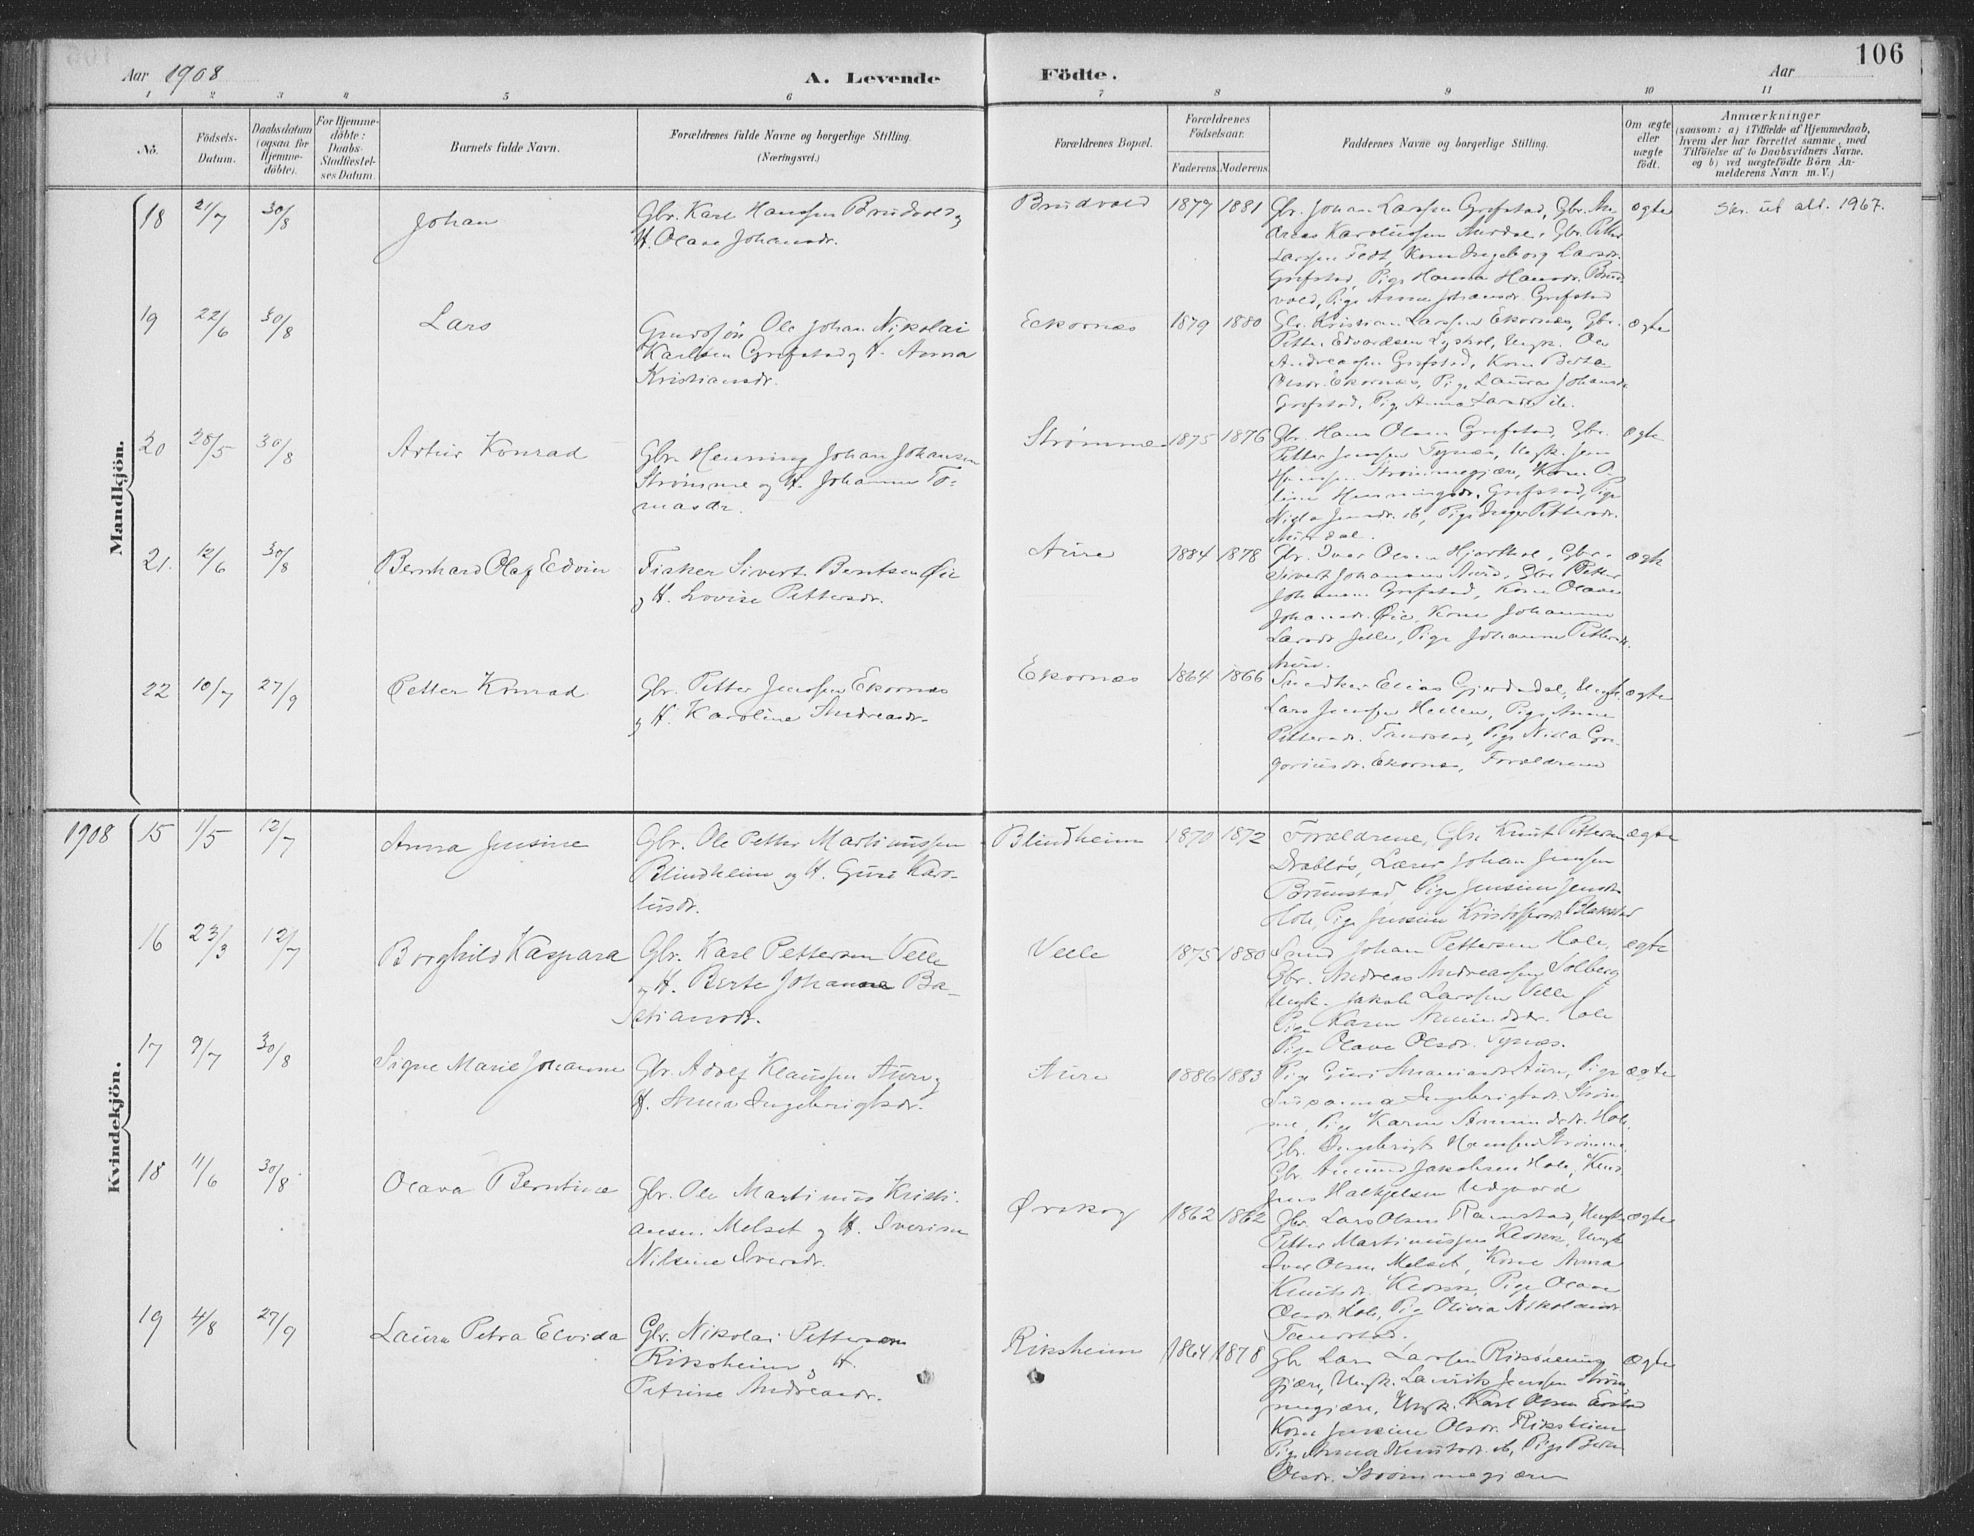 106
Aar 1908
A. Levende
Födte.
Aar
1 2 3 4 5 6 7 8 9 10 11
No.
Födsels-
Datum.
Daabsdatum
(ogsaa for
Hjemme-
döbte).
For Hjemme-
döbte:
Daabs-
Stadfæstel-
ses Datum.
Barnets fulde Navn.
Forældrenes fulde Navne og borgerlige Stilling.
(Næringsvei.)
Forældrenes Bopæl.
Forældrenes
Födselsaar.
Faderens. Moderens.
Faddernes Navne og borgerlige Stilling.
Om ægte
eller
uægte
födt.
Anmærkninger
(saasom: a) i Tilfælde af Hjemmedaab,
hvem der har forrettet samme, med
Tilföielse af to Daabsvidners Navne.
og b) ved uægtefödte Börn An-
melderens Navn m. V.)
Mandkjön.
18 21/7 30/8 Johan
Gbr. Karl Hanssen Brudvold og
H. Olave Johansdr.
Brudvold 1877 1881
Gbr. Johan Larssen Grefstad, Gbr. An-
dreas Karolussen Aurdal, Gbr. Petter
Larssen Tedt, Kone Ingeborg Larsdr.
Grefstad, Pige Hanna Hansdr. Brud-
vold, Pige Anne Johansdr. Grefstad
ægte
Skr. ut att. 1967.
19 22/6 30/8 Lars
Ole Johan Nikolai
Karlsen Grefstad og H. Anna
Kristiansdr.
Eckornæs 1879 1880
Gbr. Kristian Larssen Ekornæs, Gbr.
Petter Edvardsen Lyshol, Ungk. Ole
Andreassen Grefstad, Kone Berta
Olsdr. Ekornæs, Pige Laura Johansdr.
Grefstad, Pige Anna Larsdr.
ægte
20 28/5 30/8 Artur Konrad
Gbr. Henning Johan Johansen
Strømme og H. Johanne To-
masdr.
Strømme 1875 1876
Gbr. Hans Olsen Grefstad, Gbr.
Petter Jenssen Tynæs, Ungk. Jens
Hanssen Strømmegjære, Kone O-
line Henningsdr. Grefstad, Pige
Nikla Jensdr. ib, Pige Inger Pettersdr.
Aurdal.
ægte
21. 12/6 30/8 Bernhard Olaf Edvin
Fisker Sivert Berntsen Øie
og H. Lovise Pettersdr.
Aure 1884 1878
Gbr. Iver Olsen Hjorthol, Gbr.
Sivert Johannsen Aure, Gbr. Petter
Johansen Grefstad, Kone Olave
Johansdr. Øie, Kone Johanne
Larsdr. Jelle, Pige Johanne Pettersdr.
Aure.
ægte
22 10/7 27/9 Petter Konrad
Gbr. Petter Jenssen Ekornæs
og H. Karoline Andreasdr.
Ekornæs 1864 1866
Snedker Elias Gjerdedal, Ungk.
Lars Jenssen Hellen, Pige Anne
Pettersdr. Tandstad, Pige Nikla Gre-
goriusdr. Ekornæs, Forældrene
ægte
1908
Kvindekjön.
15 1/5 12/7 Anna Jensine
Gbr. Ole Petter Martinussen
Blindheim og H. Guri Karo-
lusdr.
Blindheim 1870 1872
Forældrene, Gbr. Knut Pettersen
Drabløs, Lærer Johan Jenssen
Brunstad, Pige Jensine Jensdr.
Hole, Pige Jensine Kristoffersdr.
ægte
16 23/3 12/7 Borghild Kaspara
Gbr. Karl Pettersen Velle
og H. Berte Johanne Ba-
stiansdr.
Velle 1875 1880
Johan Pettersen Hole,
Gbr. Andreas Andreassen Solberg
Ungk. Jakob Larssen Velle
Pige Karen Amundsdr. Hole
Pige Olave Olsdr. Tynæs.
ægte
17 9/7 30/8 Signe Marie Johanne
Gbr. Adolf Klaussen Aure og
H. Anna Ingebrigtsdr.
Aure 1886 1883
Pige Guri Aure, Pige
Susanna Ingebrigtsdr. Strøm-
me, Pige Karen Amundsdr. Hole
Gbr. Ingebrigt Hanssen Strømme
Gbr. Amund Jakobsen Hole,
Jens Halkjelsen Udgaard
ægte
18 11/6 30/8 Olava Berntine
Gbr. Ole Martinus Kristi-
ansen Melset og H. Iverine
Nilsine Iversdr.
Ørskog 1862 1862
Gbr. Lars Olsen Ramstad, Ungk.
Petter Martinussen Klokk, Ungk
Iver Olsen Melset, Kone Anna
Knutsdr. Klokk, Pige Olave
Olsdr. Hole, Pige Olivia Nikolaisdr.
Tandstad.
ægte
19 4/8 27/9 Laura Petra Elvida
Gbr. Nikolai Pettersen
Riksheim og H.
Petrine Andreasdr.
Riksheim 1864 1878
Gbr. Lars Larssen
gjære, Ungk. Laurits Jenssen Strøm-
megjære, Ungk. Karl Olsen
Kone Jensine Olsdr. Riksheim
Pige Anna Knutsdr. ib, Pige
Olsdr. Strømmegjære
ægte